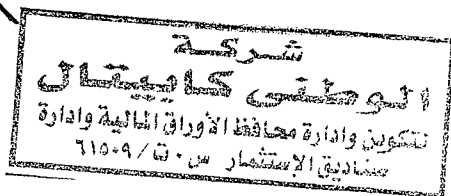 شركة
الوطنى كابيتال
لتكوين وادارة محافظ الأوراق المالية وادارة
صناديق الاستثمار س٠ت/٦١٥٠٩